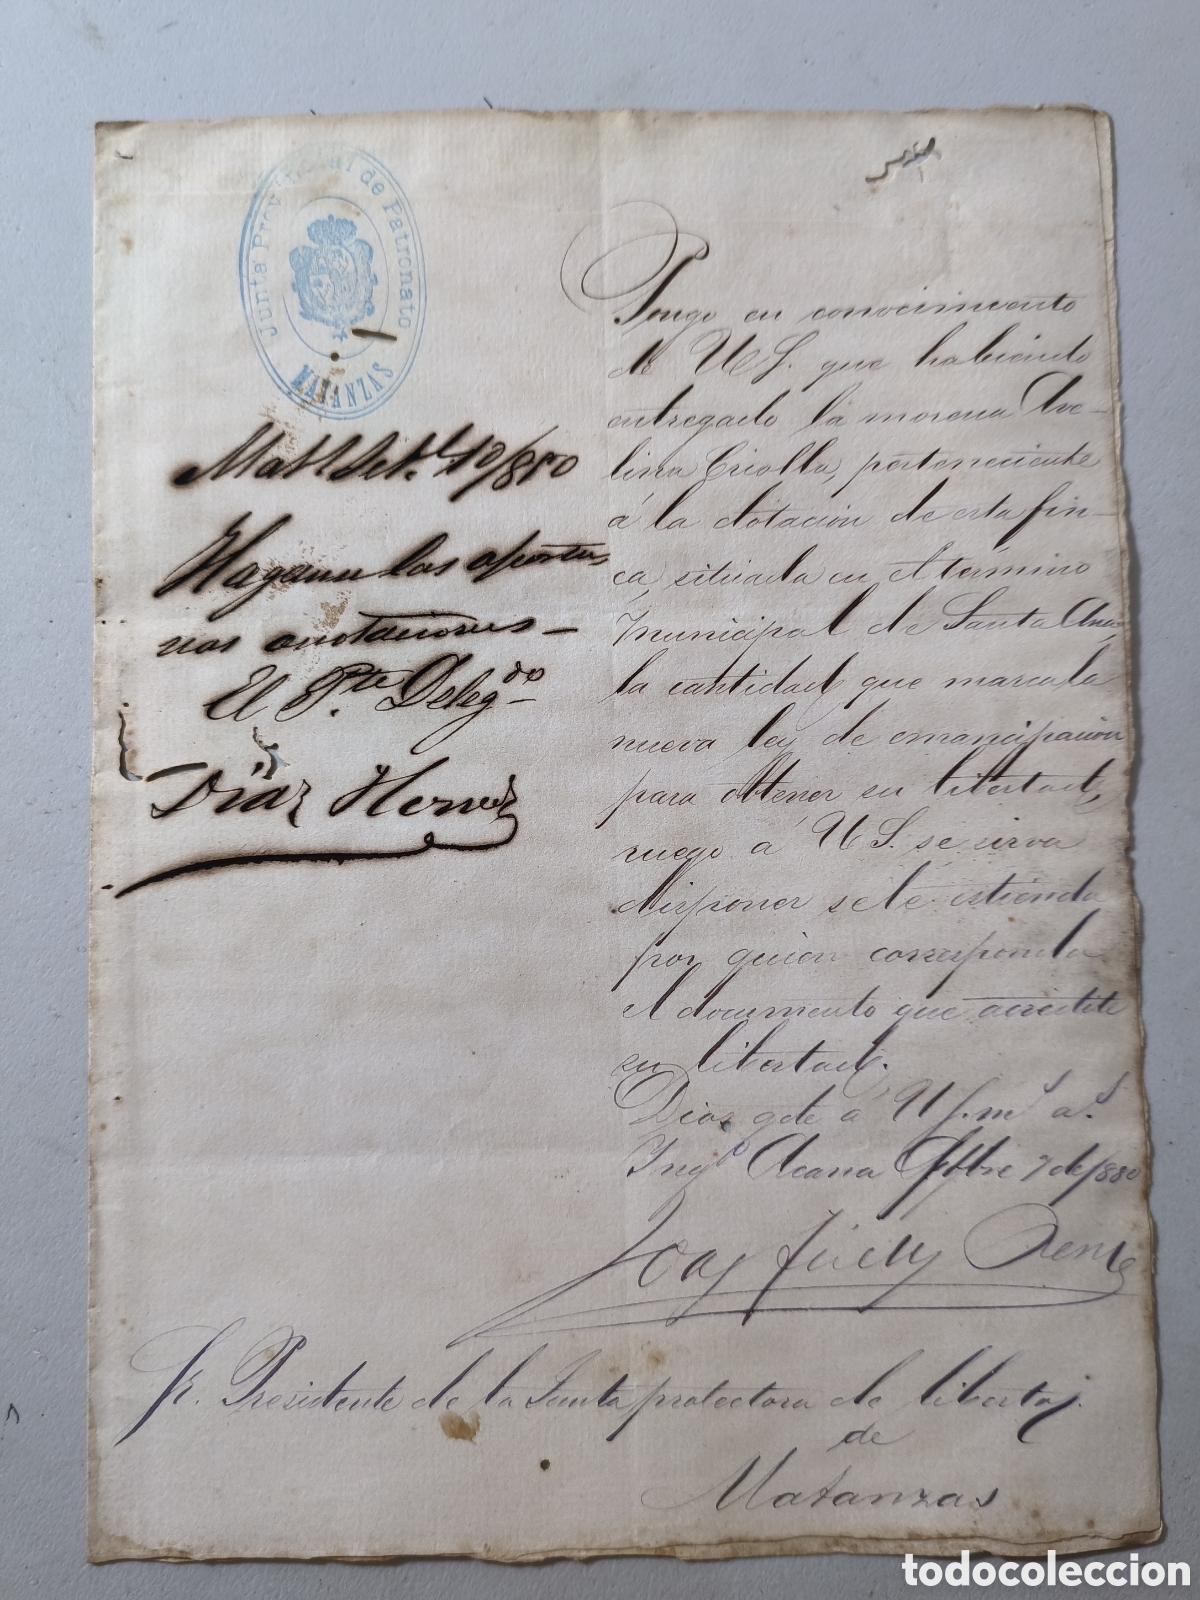 Junta Provincial de Patronato
MATANZAS
Mat.s Set.e 10/880
Haganse las oportu
nas anotaciones
El P.te Deleg.do
Diaz
Pongo en conocimiento
de U S. que habiendo
entregado la morena Ave-
lina Criolla, perteneciente
á la dotacion de esta fin-
ca, situada en el término
Municipal de Santa Ana
la cantidad que marca la
nueva ley de emancipacion
para obtener su libertad,
ruego á U S. se sirva
disponer se le estienda
por quien corresponda
el documento que acredite
su libertad.
Dios gde á U S. m.s a.s
Ing.o Acana Stbre 7 de 1880
Sr. Presidente de la Junta protectora de libertos
de
Matanzas
todocoleccion